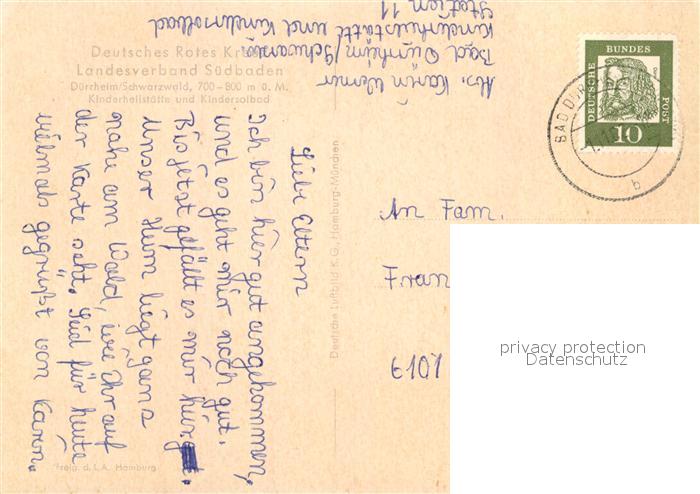 Deutsches Rotes Kreuz
Landesverband Südbaden
Dürrheim/Schwarzwald, 700-800 m ü. M.
Kinderheilstätte und Kindersolbad
Abs. Karin
Bad Dürrheim/Schwarzw.
Kinderheilstätte und Kindersolbad
Station 11
Liebe Eltern
Ich bin hier gut angekommen,
und es geht mir noch gut.
Bis jetzt gefällt es mir hier.
Unser Heim liegt ganz
nahe am Wald, wie ihr auf
der Karte seht. Seid für heute
vielmals gegrüßt von Karin.
Freig. d. L.A. Hamburg
Deutsche Luftbild K.G., Hamburg-München
DEUTSCHE BUNDES POST
10
BAD DÜRRH
b
An Fam.
Fran
6101
privacy protection
Datenschutz